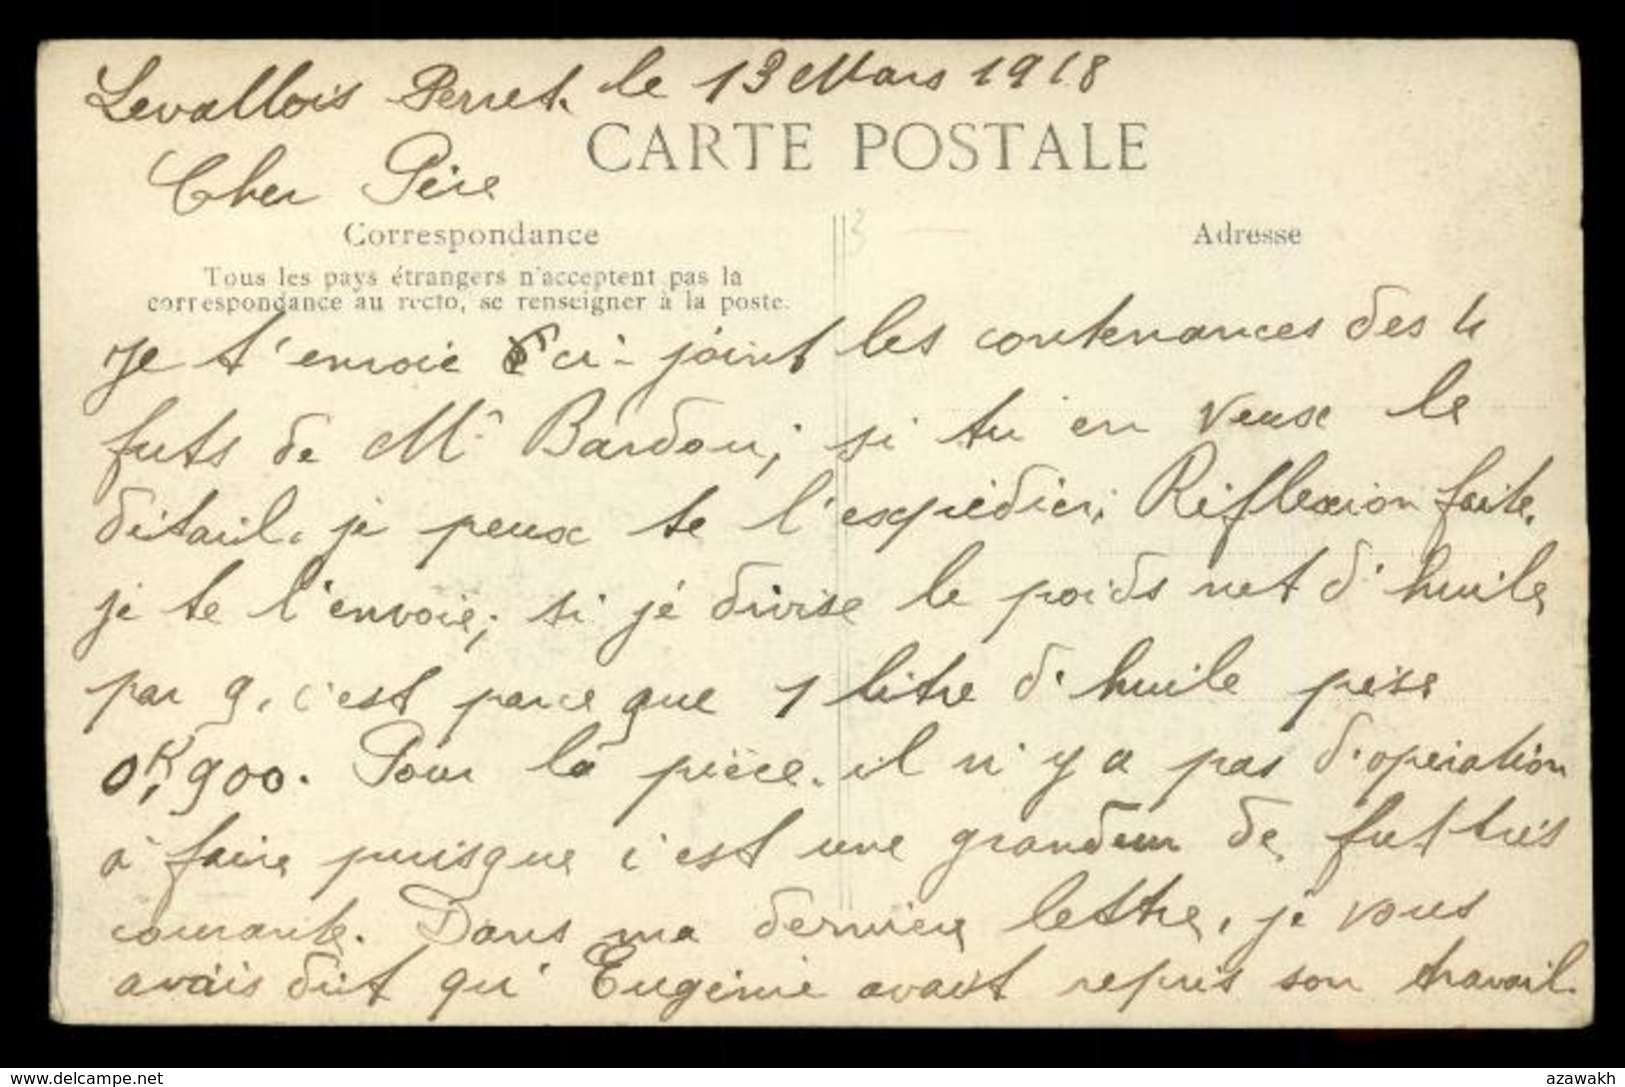 Levallois Perret. le 13 Mars 1918
CARTE POSTALE
Cher Père
Correspondance
Adresse
Tous les pays étrangers n'acceptent pas la
correspondance au recto, se renseigner à la poste.
3
Je t'envoie ci-joint les contenances des 4
futs de Mr Bardou; si tu en veux le
détail, je peux te l'expédier; Réflexion faite,
je te l'envoie; si je divise le poids net d'huile
par 9, c'est parce que 1 litre d'huile pèse
0K,900. Pour la pièce, il n'y a pas d'opération
à faire puisque c'est une grandeur de fut très
courante. Dans ma dernière lettre, je vous
avais dit qu'Eugénie avait repris son travail.
www.delcampe.net
azawakh